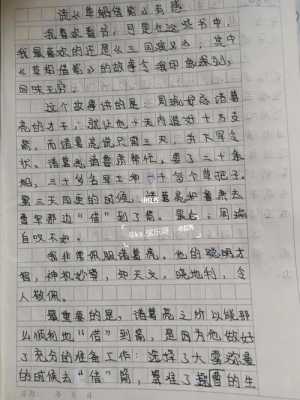 读《草船借箭》有感
我喜欢看书，可是在这些书中，
我最喜欢的还是《三国演义》，其中
《草船借箭》的故事令我印象深刻，
回味无穷。
这个故事讲的是：周瑜妒忌诸葛
亮的才干，就让他十天内造好十万支
箭，而诸葛亮说只需三天，并下军令
状。诸葛亮请鲁肃帮忙，要了二十条
船，三十多名军士和一千多个草把子。
第三天四更的时候，诸葛亮和鲁肃去
曹军那边“借”到了箭。最后，周瑜
自叹不如。
我非常佩服诸葛亮。他的聪明才
智，神机妙算，知天文，晓地利，令
人敬佩。
最重要的是，诸葛亮之所以能那
么顺利地“借”到箭，是因为他做好
了充分的准备工作：选择了大雾弥漫
的时候去“借”箭，掌握了曹操的生